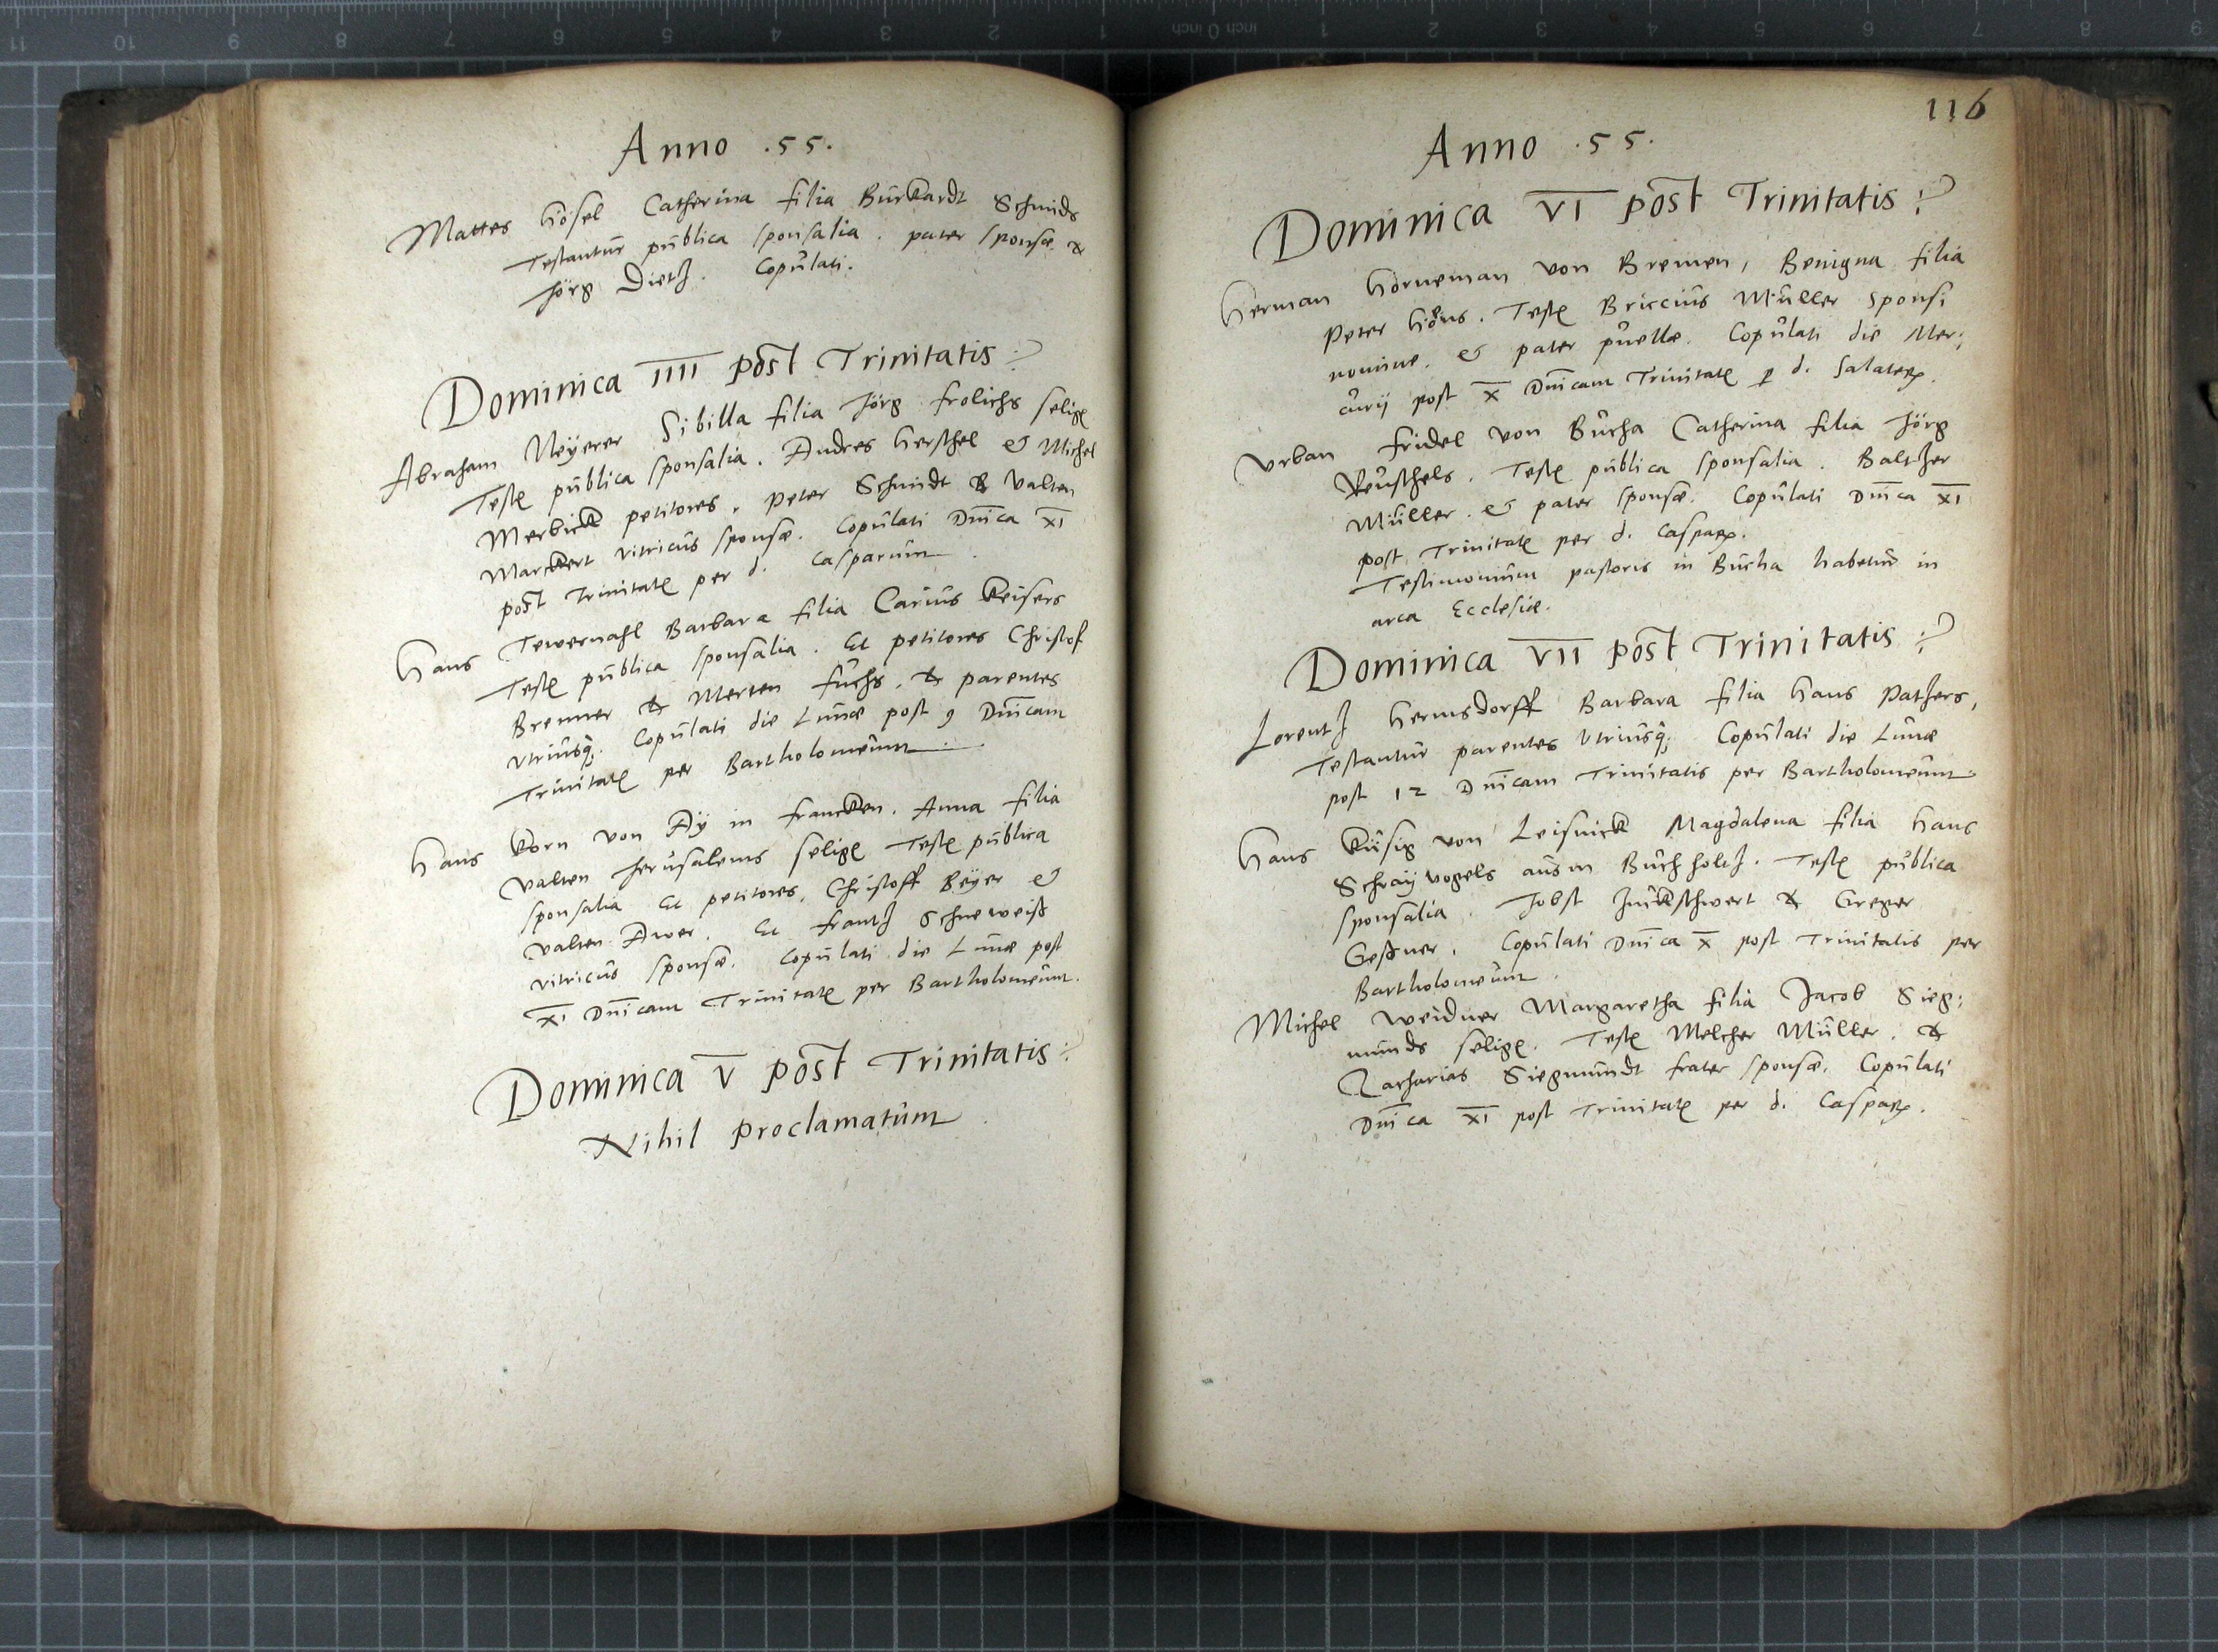 Anno .55.
Mattes Hösel Catherina filia Burkardt Schmids
Testantur publica sponsalia. pater sponsæ &
Jörg Dietz. Copulati.
Dominica IIII post Trinitatis
Abraham Neÿerer Sibilla filia Jörg frolichs selig
Test publica sponsalia. Andres Herschel & Michel
Merbick petitores. Peter Schmidt & Valten
Marckert vitricus sponsæ. Copulati Dnica XI
post Trinitat per d. Casparum.
Hans Tewernahl Barbara filia Carius Keisers
Test publica sponsalia. Et petitores Christof
Brenner & Merten fuchs. & parentes
vtriusq; Copulati die Lunæ post 9 Dnicam
Trinitat per Bartholomeum.
Hans Korn von Aÿ in francken. Anna filia
Valten Jerusalems selig Test publica
sponsalia Et petitores, Christoff Beÿer &
Valten Awer. Et frantz Schneweiß
vitricus sponsæ. Copulati die Lunæ post
XI Dnicam Trinitat per Bartholomeum.
Dominica V post Trinitatis
Nihil proclamatum
116
Anno .55.
Dominica VI post Trinitatis
Herman Horneman von Bremen, Benigna filia
Peter Höns. Test Briccius Müller sponsi
nomine. & pater puellæ. Copulati die Mer;
curij post X Dnicam Trinitat p d. Salater.
Vrban fridel von Bucha Catherina filia Jörg
Reuschels. Test publica sponsalia. Baltzer
Müller. & pater sponsæ. Copulati Dnica XI
post Trinitat per d. Caspar.
Testimonium pastoris in Bucha habetur in
arca Ecclesiæ.
Dominica VII post Trinitatis
Lorentz Hermsdorff Barbara filia Hans Patzers,
Testantur parentes vtriusq; Copulati die Lunæ
post 12 Dnicam Trinitatis per Bartholomeum.
Hans Küsig von Leisnick Magdalena filia Hans
Schraÿvogels ausm Buchholtz. Test publica
sponsalia. Jobst Zuckschwert & Greger
Geßner. Copulati Dnica X post Trinitatis per
Bartholomeum.
Michel Weidner Margaretha filia Jacob Sieg;
munds selig. Test Melcher Müller. &
Zacharias Siegmundt frater sponsæ. Copulati
Dnica XI post Trinitat per d. Caspar.